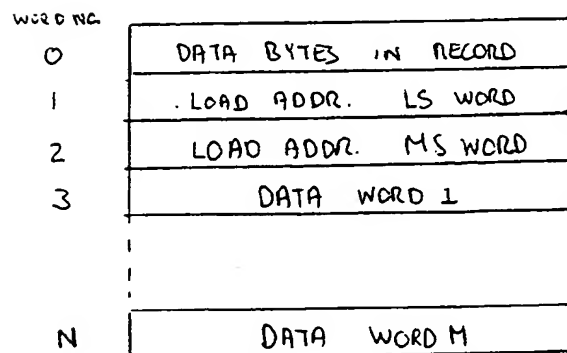 WORD NO.
0 DATA BYTES IN RECORD
1 . LOAD ADDR. LS WORD
2 LOAD ADDR. MS WORD
3 DATA WORD 1
N DATA WORD M